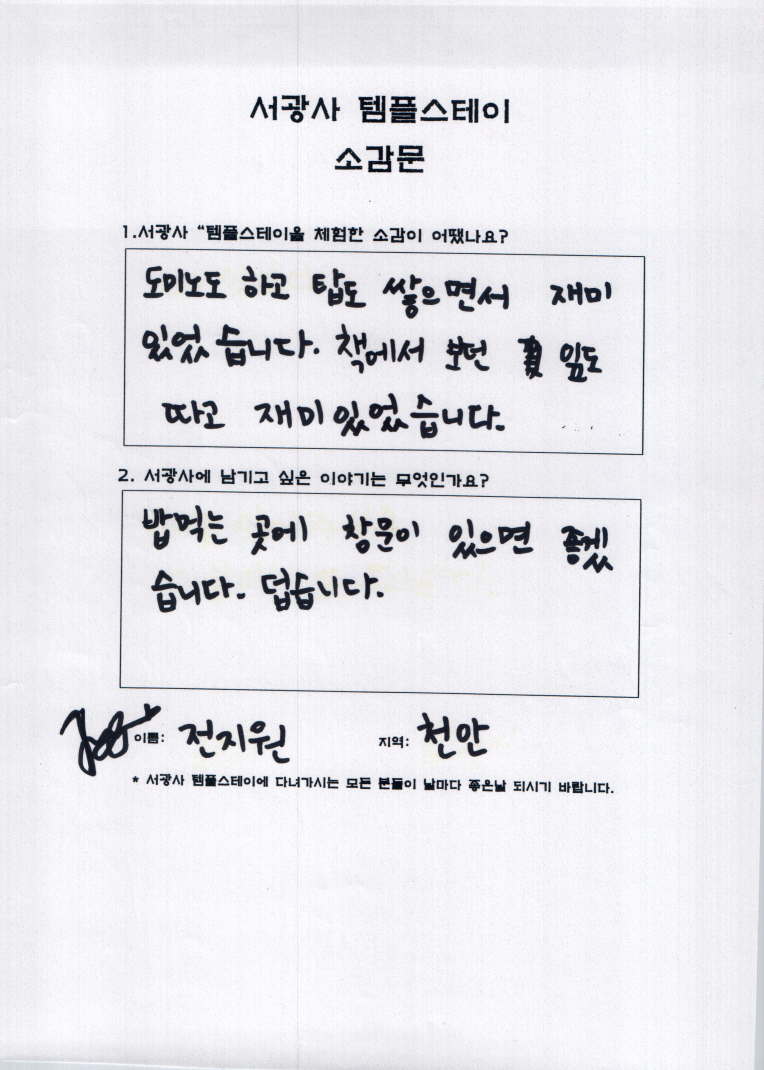 서광사 템플스테이
소감문
1.서광사 “템플스테이을 체험한 소감이 어땠나요?
도미노도 하고 탑도 쌓으면서 재미
있었습니다. 책에서 보던 잎도
따고 재미있었습니다.
2. 서광사에 남기고 싶은 이야기는 무엇인가요?
밥먹는 곳에 창문이 있으면 좋겠
습니다. 덥습니다.
이름: 전지원 지역: 천안
* 서광사 템플스테이에 다녀가시는 모든 분들이 날마다 좋은날 되시기 바랍니다.